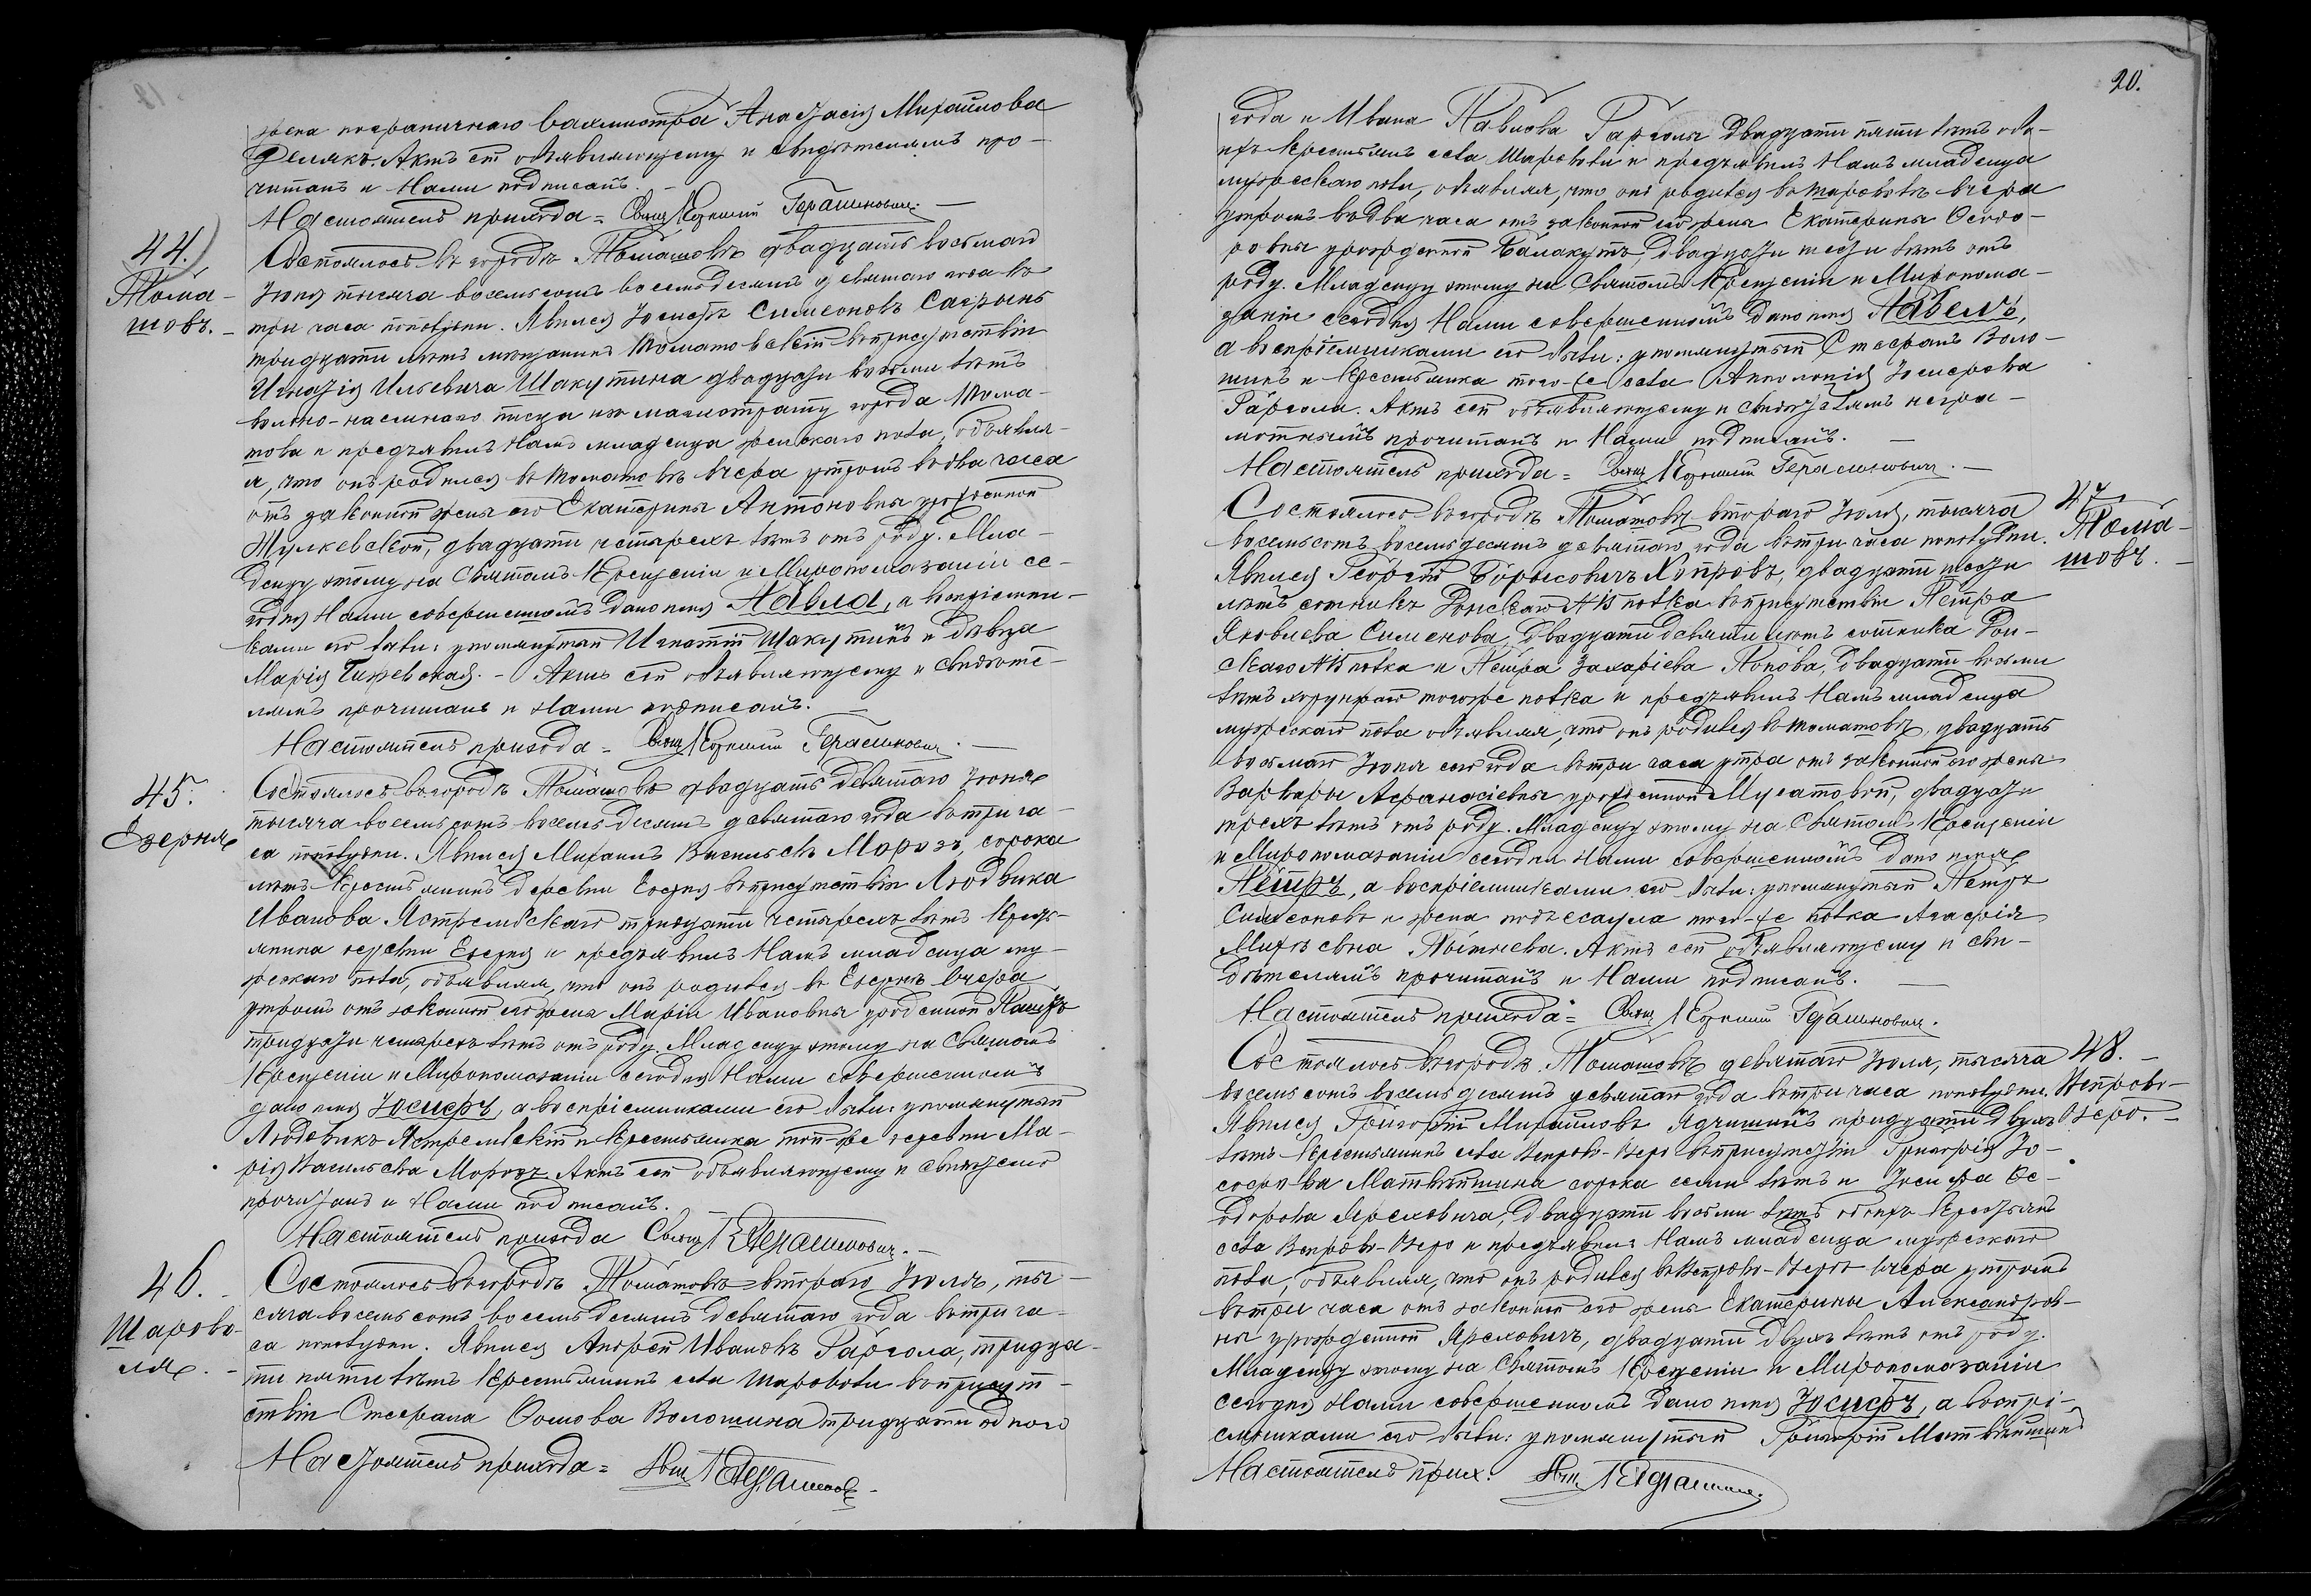 20.
жена пограничнаго вахмистра Анастасія Михайлова
Актъ сей объявляющему и свидѣтелямъ про-
читанъ и Нами подписанъ. —
Настоятель прихода = Свящ. Герашиновичъ. —
44.
Тома-
шовъ. -
Состоялось въ городѣ Томашовѣ двадцать восьмаго
Іюня тысяча восемьсотъ восемьдесятъ девятаго года въ
три часа пополудни. Явился Іосифъ Симеоновъ
тридцати лѣтъ мѣщанинъ Томашовскій въ присутствіи
Игнатія Ильевича Шакутина двадцати восьми лѣтъ
вольно-наемнаго писца изъ магистрату города Тома-
шова и предъявилъ Намъ младенца женскаго пола, объявля-
я, что онъ родился въ Томашовѣ вчера утромъ въ два часа
отъ законной жены его Екатерины Антоновны урожденной
Жулкевской, двадцати четырехъ лѣтъ отъ роду. Мла-
денцу этому на Святомъ Крещеніи и Миропомазаніи се-
годня Нами совершенномъ дано имя Павла, а воспріемни-
ками его были: упомянутый Игнатій Шакутинъ и дѣвица
Марія - Актъ сей объявляющему и свидѣте-
лямъ прочитанъ и Нами подписанъ. —
Настоятель прихода = Свящ. Герашиновичъ. —
45.
Езерня
Состоялось въ городѣ Томашовѣ двадцать девятаго Іюня
тысяча восемьсотъ восемьдесятъ девятаго года въ три ча-
са пополудни. Явился Михаилъ Васильевъ Морозъ, сорока
лѣтъ крестьянинъ деревни Езерня въ присутствіи Людвика
Иванова Ястремскаго тридцати четырехъ лѣтъ кресть-
янина деревни Езерня и предъявилъ Намъ младенца му-
жескаго пола, объявляя, что онъ родился въ Езернѣ вчера
утромъ отъ законной его жены Маріи Ивановны урожденной
тридцати четырехъ лѣтъ отъ роду. Младенцу этому на Святомъ
Крещеніи и Миропомазаніи сегодня Нами совершенномъ
дано имя Іосифъ, а воспріемниками его были: упомянутый
Людовикъ Ястремскій и крестьянка той-же деревни Ма-
рія Васильева Морозъ. Актъ сей объявляющему и свидѣтелю
прочитанъ и Нами подписанъ.
Настоятель прихода Свящ. Герашиновичъ. —
46. -
Шарово-
ля. -
Состоялось въ городѣ Томашовѣ втораго Іюля, ты-
сяча восемьсотъ восемьдесятъ девятаго года въ три ча-
са пополудни. Явился Андрей Ивановъ Гаргола, тридца-
ти пяти лѣтъ крестьянинъ села Шароволи въ присут-
ствіи Стефана Волошина тридцати одного
Настоятель прихода = Свящ.
года и Ивана Павлова Гарголы двадцати пяти лѣтъ обо-
ихъ крестьянъ села Шароволи и предъявилъ Намъ младенца
мужескаго пола, объявляя, что онъ родился въ Шароволѣ вчера
утромъ въ два часа отъ законной его жены Екатерины Осипо-
ровны урожденной двадцати лѣтъ отъ
роду. Младенцу этому на Святомъ Крещеніи и Миропома-
заніи сегодня Нами совершенномъ дано имя Павелъ,
а воспріемниками его были: упомянутый Стефанъ Воло-
шинъ и крестьянка того-же села Аполонія Іосифова
Гаргола. Актъ сей объявляющему и свидѣтелямъ негра-
мотнымъ прочитанъ и Нами подписанъ. —
Настоятель прихода = Свящ. Герашиновичъ. —
47
Тома-
шовъ. -
Состоялось въ городѣ Томашовѣ втораго Іюля, тысяча
восемьсотъ восемьдесятъ девятаго года въ три часа пополудни.
Явился Георгій Борисовичъ Хопровъ, двадцати
лѣтъ сотникъ Донскаго полка въ присутствіи Петра
Яковлева Сименова, двадцати девяти лѣтъ сотника Дон-
скаго полка и Петра Захаріева Попова, двадцати восьми
лѣтъ хорунжаго того-же полка и предъявилъ Намъ младенца
мужескаго пола объявляя, что онъ родился въ Томашовѣ, двадцать
восьмаго Іюня сего года въ три часа утра отъ законной его жены
Варвары Афанасіевны урожденной Мусатовой, двадцати
трехъ лѣтъ отъ роду. Младенцу этому на Святомъ Крещеніи
и Миропомазаніи сегодня Нами совершенномъ дано имя
Петръ, а воспріемниками его были: упомянутый Петръ
Симеоновъ и жена подъесаула того-же полка Агафія
Актъ сей объявляющему и сви-
дѣтелямъ прочитанъ и Нами подписанъ. —
Настоятель прихода = Свящ. Герашиновичъ.
48. -
Вепрово-
Озеро. -
Состоялось въ городѣ Томашовѣ девятаго Іюля, тысяча
восемьсотъ восемьдесятъ девятаго года въ три часа пополудни.
Явился Григорій Михайловъ тридцати двухъ
лѣтъ крестьянинъ села Вепрово-Озеро въ присутствіи Григорія Іо-
сифова Матвѣйшина сорока семи лѣтъ и Іосифа Ѳе-
дорова Яреховича, двадцати восьми лѣтъ обоихъ крестьянъ
села Вепрово-Озеро и предъявилъ Намъ младенца мужескаго
пола, объявляя, что онъ родился въ Вепрово-Озерѣ вчера утромъ
въ три часа отъ законной его жены Екатерины Александров-
ны урожденной Яреховичъ, двадцати двухъ лѣтъ отъ роду.
Младенцу этому на Святомъ Крещеніи и Миропомазаніи
сегодня Нами совершенномъ дано имя Іосифъ, а воспрі-
емниками его были: упомянутый Григорій Матвѣйшинъ
Настоятель прих. Свящ.